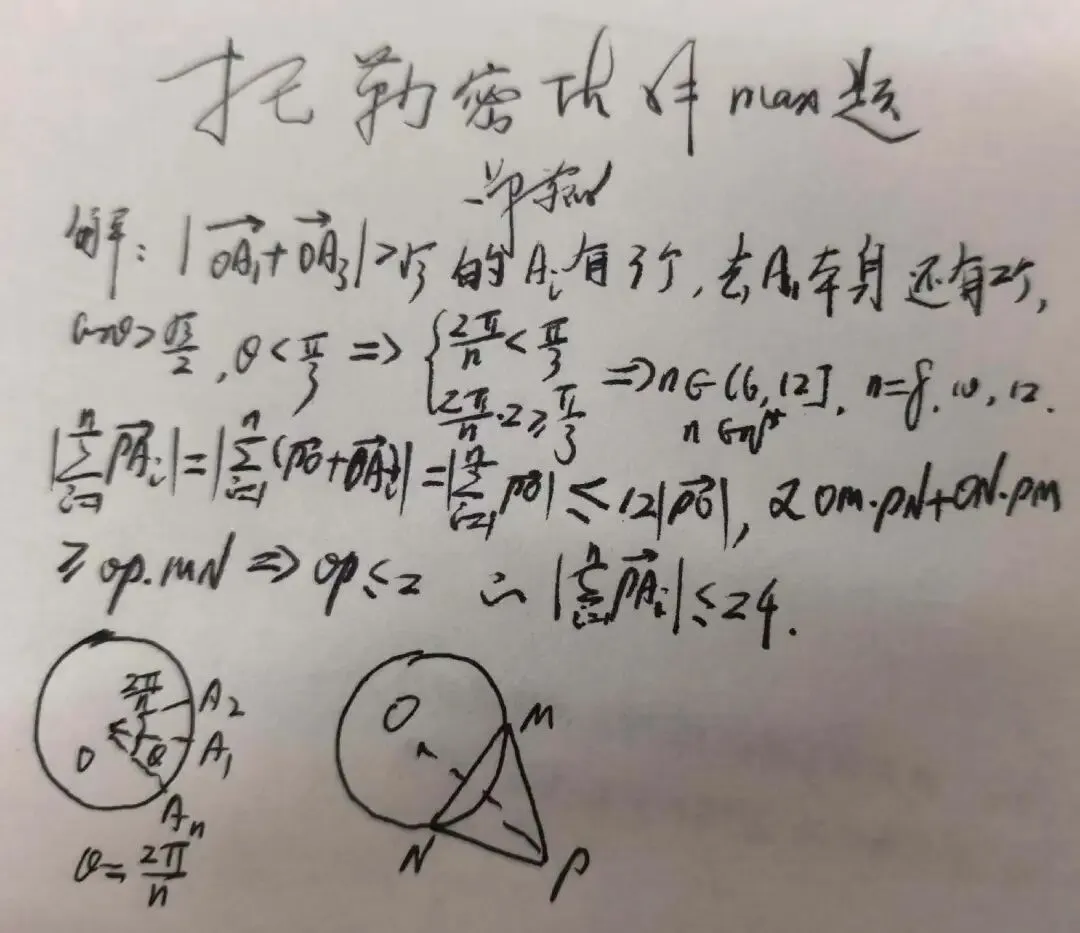 托勒密 max题
解：|OA₁+OA₃|>√3 的 Aᵢ 有3个, 去A₁本身还有2个,
cosθ>√3/2, θ<π/3 ⇒ { 2π/n<π/3, 2π/n·2≥π/3 ⇒n∈(6,12], n∈N*, n=8, 10, 12.
|∑ᵢ₌₁ⁿ PAᵢ|=|∑ᵢ₌₁ⁿ(PO+OAᵢ)|=|∑ᵢ₌₁ⁿ PO|≤12|PO|, 又OM·PN+ON·PM
≥OP·MN⇒OP≤2 ∴|∑ᵢ₌₁ⁿ PAᵢ|≤24.
2π/n A₂
O θ A₁
Aₙ
θ=2π/n
O M
N P